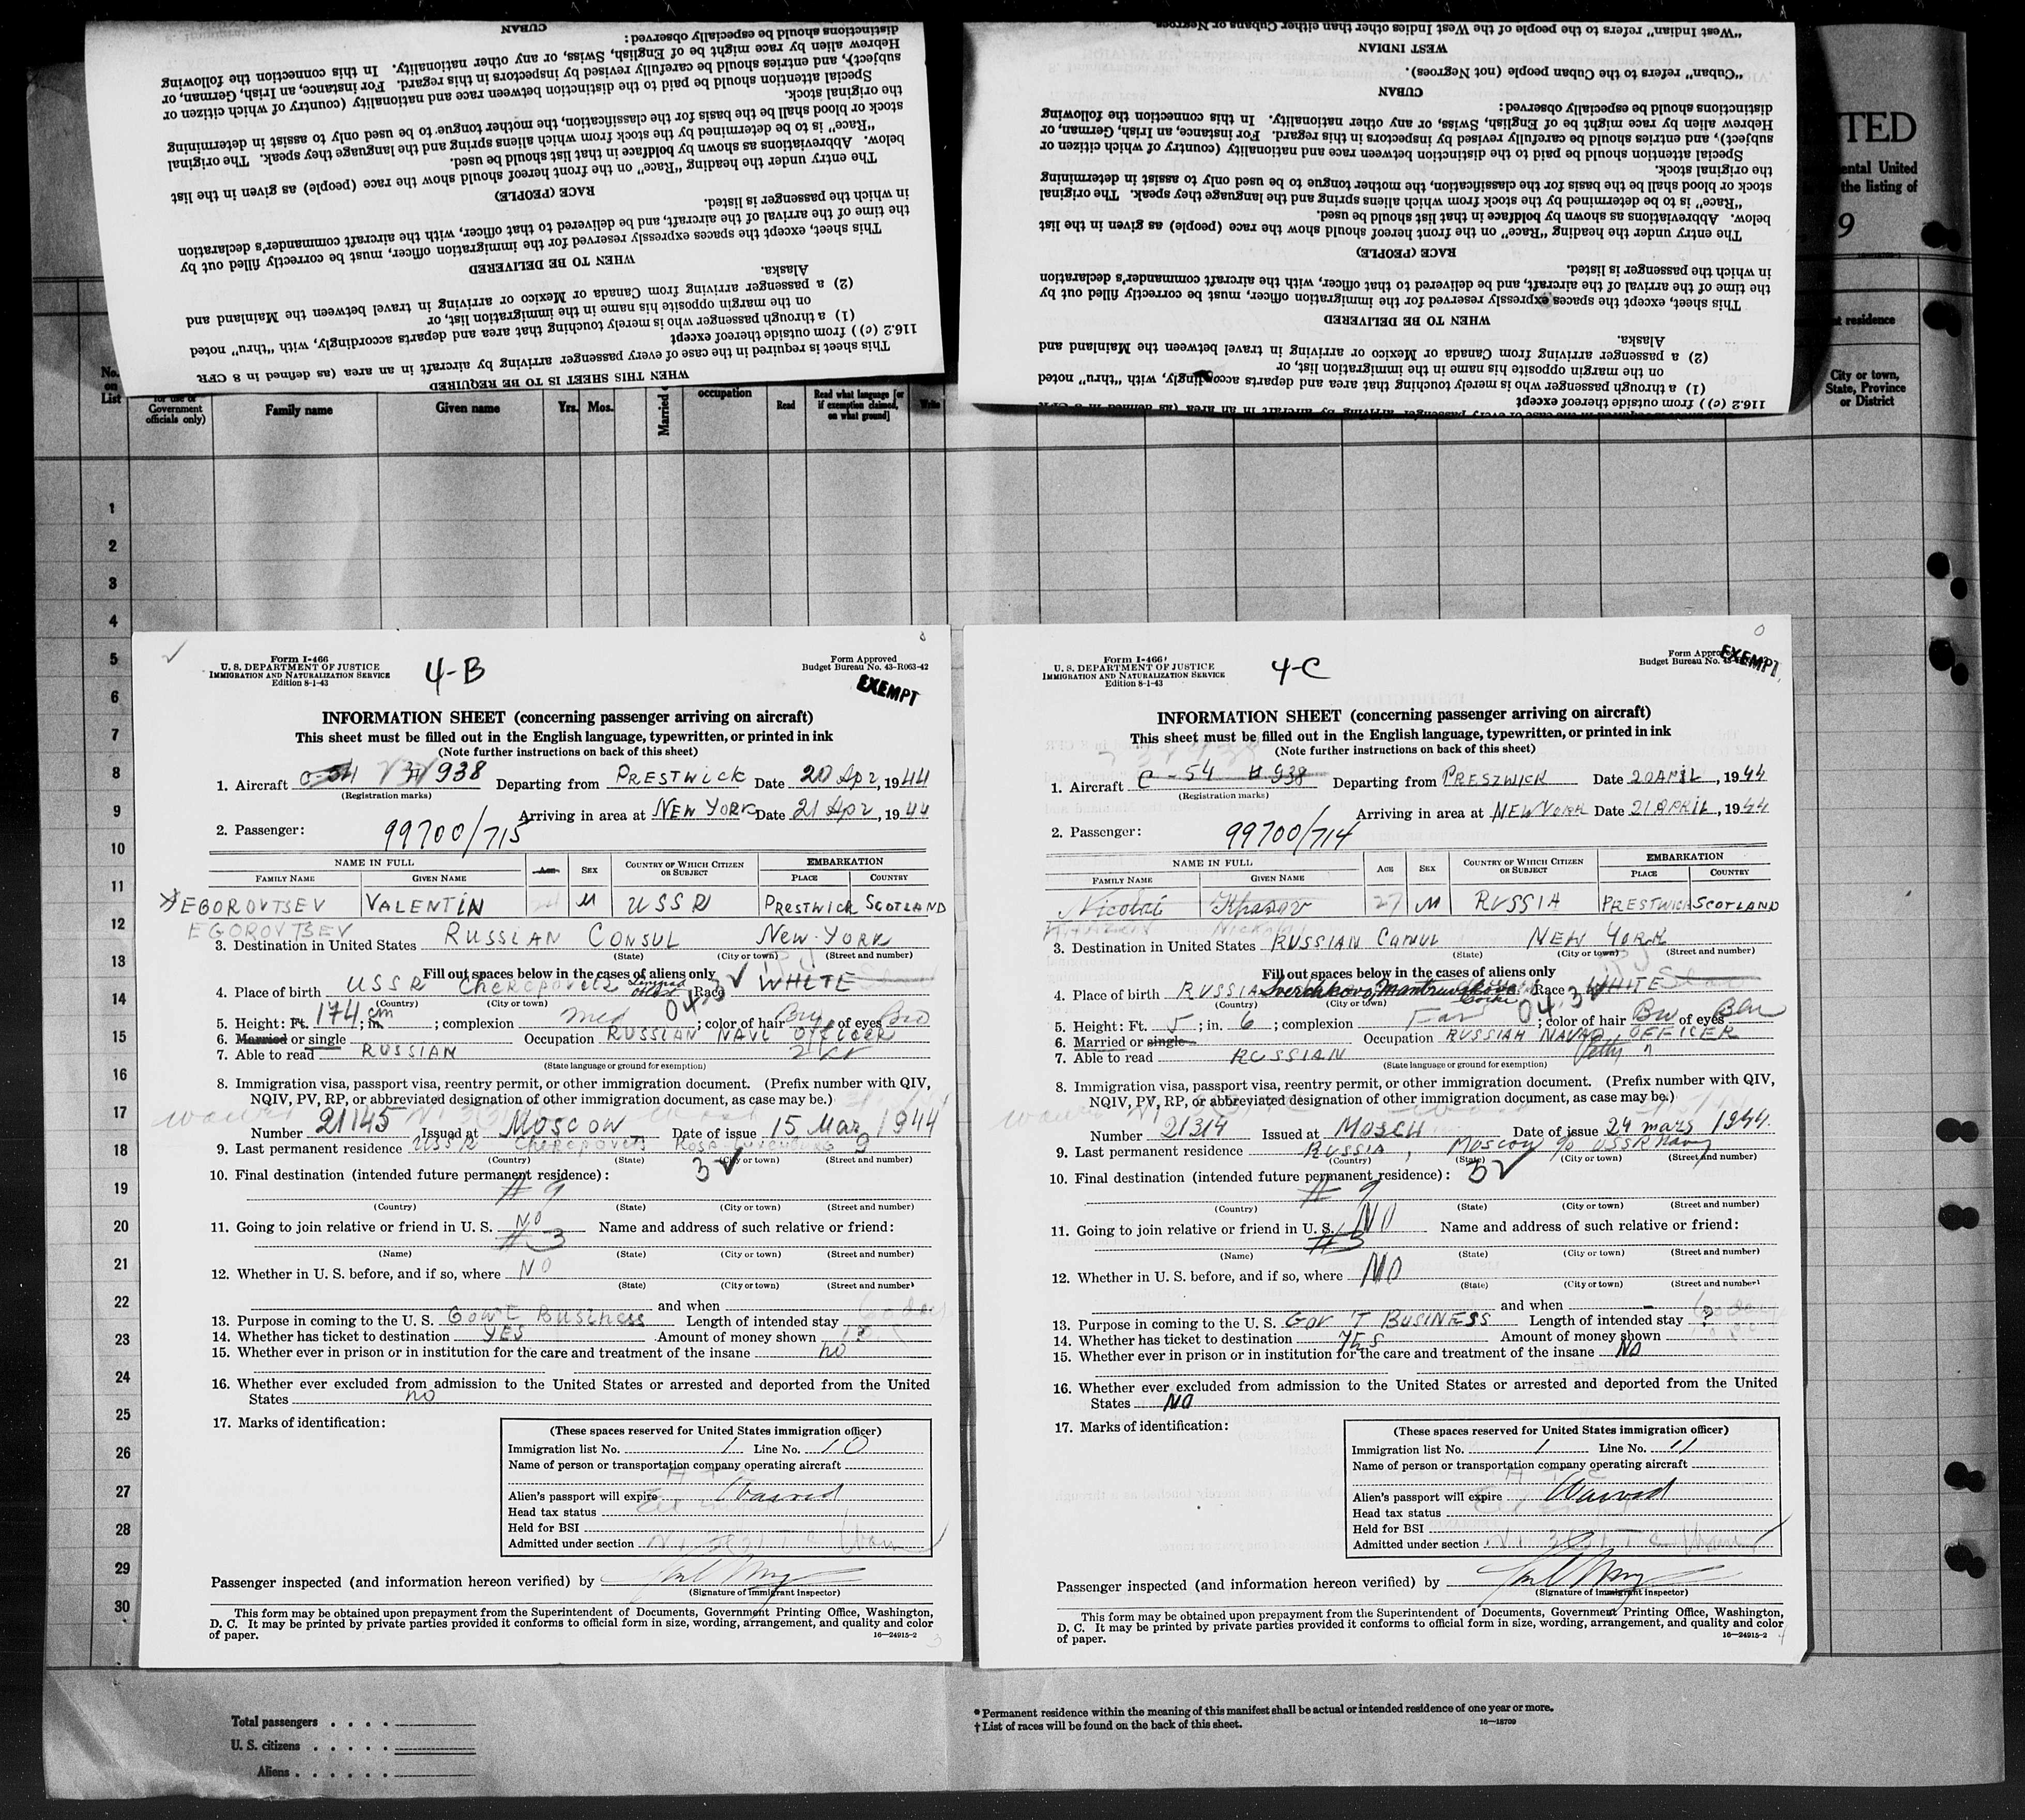 "West Indian" refers to the people of the West Indies other than either Cubans or Negroes
WEST INDIAN
"Cuban" refers to the Cuban people (not Negroes).
CUBAN
distinctions should be especially observed:
Hebrew alien by race might be of English, Swiss, or any other nationality. In this connection the following
subject), and entries should be carefully revised by inspectors in this regard. For instance, an Irish, German, or
Special attention should be paid to the distinction between race and nationality (country of which citizen or
the original stock.
stock or blood shall be the basis for the classification, the mother tongue to be used only to assist in determining
"Race" is to be determined by the stock from which aliens spring and the language they speak. The original
below. Abbreviations as shown by boldface in that list should be used.
The entry under the heading "Race" on the front hereof should show the race (people) as given in the list
RACE (PEOPLE)
in which the passenger is listed.
the time of the arrival of the aircraft, and be delivered to that officer, with the aircraft commander's declaration
This sheet, except the spaces expressly reserved for the immigration officer, must be correctly filled out by
WHEN TO BE DELIVERED
Alaska.
(2) a passenger arriving from Canada or Mexico or arriving in travel between the Mainland and
on the margin opposite his name in the immigration list, or
(1) a through passenger who is merely touching that area and departs accordingly, with "thru" noted
116.2 (c)) from outside thereof except
This sheet is required in the case of every passenger arriving by aircraft in an area (as defined in 8 CFR
WHEN THIS SHEET IS TO BE REQUIRED
TED
ental United
the listing of
9
residence
City or town, State, Province or District
No. on List
Government officials only)
Family name
Given name
Yrs. Mos.
Married
occupation
Read
Read what language [or if exemption claimed, on what ground]
Write
1
2
3
4
5
6
7
8
9
10
11
12
13
14
15
16
17
18
19
20
21
22
23
24
25
26
27
28
29
30
Form I-466
U. S. DEPARTMENT OF JUSTICE
IMMIGRATION AND NATURALIZATION SERVICE
Edition 8-1-43
4-B
Form Approved
Budget Bureau No. 43-R063-42
EXEMPT
INFORMATION SHEET (concerning passenger arriving on aircraft)
This sheet must be filled out in the English language, typewritten, or printed in ink
(Note further instructions on back of this sheet)
1. Aircraft C-54 938 Departing from PRESTWICK Date 20 Apr, 1944
(Registration marks)
Arriving in area at NEW YORK Date 21 Apr, 1944
2. Passenger: 99700/715
NAME IN FULL AGE SEX COUNTRY OF WHICH CITIZEN OR SUBJECT EMBARKATION
FAMILY NAME GIVEN NAME PLACE COUNTRY
EGOROVTSEV VALENTIN M USSR PRESTWICK SCOTLAND
EGOROVTSEV
3. Destination in United States RUSSIAN CONSUL NEW-YORK
(State) (City or town) (Street and number)
Fill out spaces below in the cases of aliens only
4. Place of birth USSR Cherepovets Race WHITE
(Country) (City or town)
04.3
5. Height: Ft. 174 cm; in. ; complexion med; color of hair Bru of eyes Bro
6. Married or single Occupation RUSSIAN NAVL OFFICER
7. Able to read RUSSIAN
(State language or ground for exemption)
8. Immigration visa, passport visa, reentry permit, or other immigration document. (Prefix number with QIV,
NQIV, PV, RP, or abbreviated designation of other immigration document, as case may be.)
Number 21145 Issued at MOSCOW Date of issue 15 Mar, 1944
9. Last permanent residence USSR Cherepovets 9
(Country) (State) (City or town) (Street and number)
10. Final destination (intended future permanent residence): 3
# 9
(Country) (State) (City or town) (Street and number)
11. Going to join relative or friend in U. S. NO Name and address of such relative or friend:
# 3
(Name) (State) (City or town) (Street and number)
12. Whether in U. S. before, and if so, where NO
(State) (City or town) (Street and number)
and when
13. Purpose in coming to the U. S. Gov't Business Length of intended stay
14. Whether has ticket to destination YES Amount of money shown ?
15. Whether ever in prison or in institution for the care and treatment of the insane no
16. Whether ever excluded from admission to the United States or arrested and deported from the United
States no
17. Marks of identification:
(These spaces reserved for United States immigration officer)
Immigration list No. 1 Line No. 10
Name of person or transportation company operating aircraft
Alien's passport will expire Waived
Head tax status
Held for BSI
Admitted under section
Passenger inspected (and information hereon verified) by
(Signature of immigrant inspector)
This form may be obtained upon prepayment from the Superintendent of Documents, Government Printing Office, Washington,
D. C. It may be printed by private parties provided it conforms to official form in size, wording, arrangement, and quality and color
of paper. 16—24915-2
Form I-466
U. S. DEPARTMENT OF JUSTICE
IMMIGRATION AND NATURALIZATION SERVICE
Edition 8-1-43
4-C
Form Approved
Budget Bureau No.
EXEMPT
INFORMATION SHEET (concerning passenger arriving on aircraft)
This sheet must be filled out in the English language, typewritten, or printed in ink
(Note further instructions on back of this sheet)
1. Aircraft C-54 # 938 Departing from PRESZWICK Date 20 APIL, 1944
(Registration marks)
Arriving in area at NEW YORK Date 21 APRIL, 1944
2. Passenger: 99700/714
NAME IN FULL AGE SEX COUNTRY OF WHICH CITIZEN OR SUBJECT EMBARKATION
FAMILY NAME GIVEN NAME PLACE COUNTRY
Nicolai 27 M RUSSIA PRESTWICK SCOTLAND
3. Destination in United States RUSSIAN CONUL NEW YORK
(State) (City or town) (Street and number)
Fill out spaces below in the cases of aliens only
4. Place of birth RUSSIA Race WHITE
(Country) (City or town)
04.3
5. Height: Ft. 5; in. 6; complexion Fair; color of hair Bru of eyes Blu
6. Married or single Occupation RUSSIAN NAVAL OFFICER
7. Able to read RUSSIAN Petty
(State language or ground for exemption)
8. Immigration visa, passport visa, reentry permit, or other immigration document. (Prefix number with QIV,
NQIV, PV, RP, or abbreviated designation of other immigration document, as case may be.)
Number 21314 Issued at MOSCU Date of issue 24 mars 1944.
9. Last permanent residence RUSSIA, Moscow % USSR Navy
(Country) (State) (City or town) (Street and number)
10. Final destination (intended future permanent residence): 3
# 9
(Country) (State) (City or town) (Street and number)
11. Going to join relative or friend in U. S. NO Name and address of such relative or friend:
# 3
(Name) (State) (City or town) (Street and number)
12. Whether in U. S. before, and if so, where NO
(State) (City or town) (Street and number)
and when –
13. Purpose in coming to the U. S. GOV'T BUSINESS Length of intended stay ?
14. Whether has ticket to destination YES Amount of money shown
15. Whether ever in prison or in institution for the care and treatment of the insane NO
16. Whether ever excluded from admission to the United States or arrested and deported from the United
States NO
17. Marks of identification:
(These spaces reserved for United States immigration officer)
Immigration list No. 1 Line No. 11
Name of person or transportation company operating aircraft
Alien's passport will expire Waived
Head tax status
Held for BSI
Admitted under section
Passenger inspected (and information hereon verified) by
(Signature of immigrant inspector)
This form may be obtained upon prepayment from the Superintendent of Documents, Government Printing Office, Washington,
D. C. It may be printed by private parties provided it conforms to official form in size, wording, arrangement, and quality and color
of paper. 16—24915-2
Total passengers
U. S. citizens
Aliens
* Permanent residence within the meaning of this manifest shall be actual or intended residence of one year or more.
† List of races will be found on the back of this sheet. 16—18709